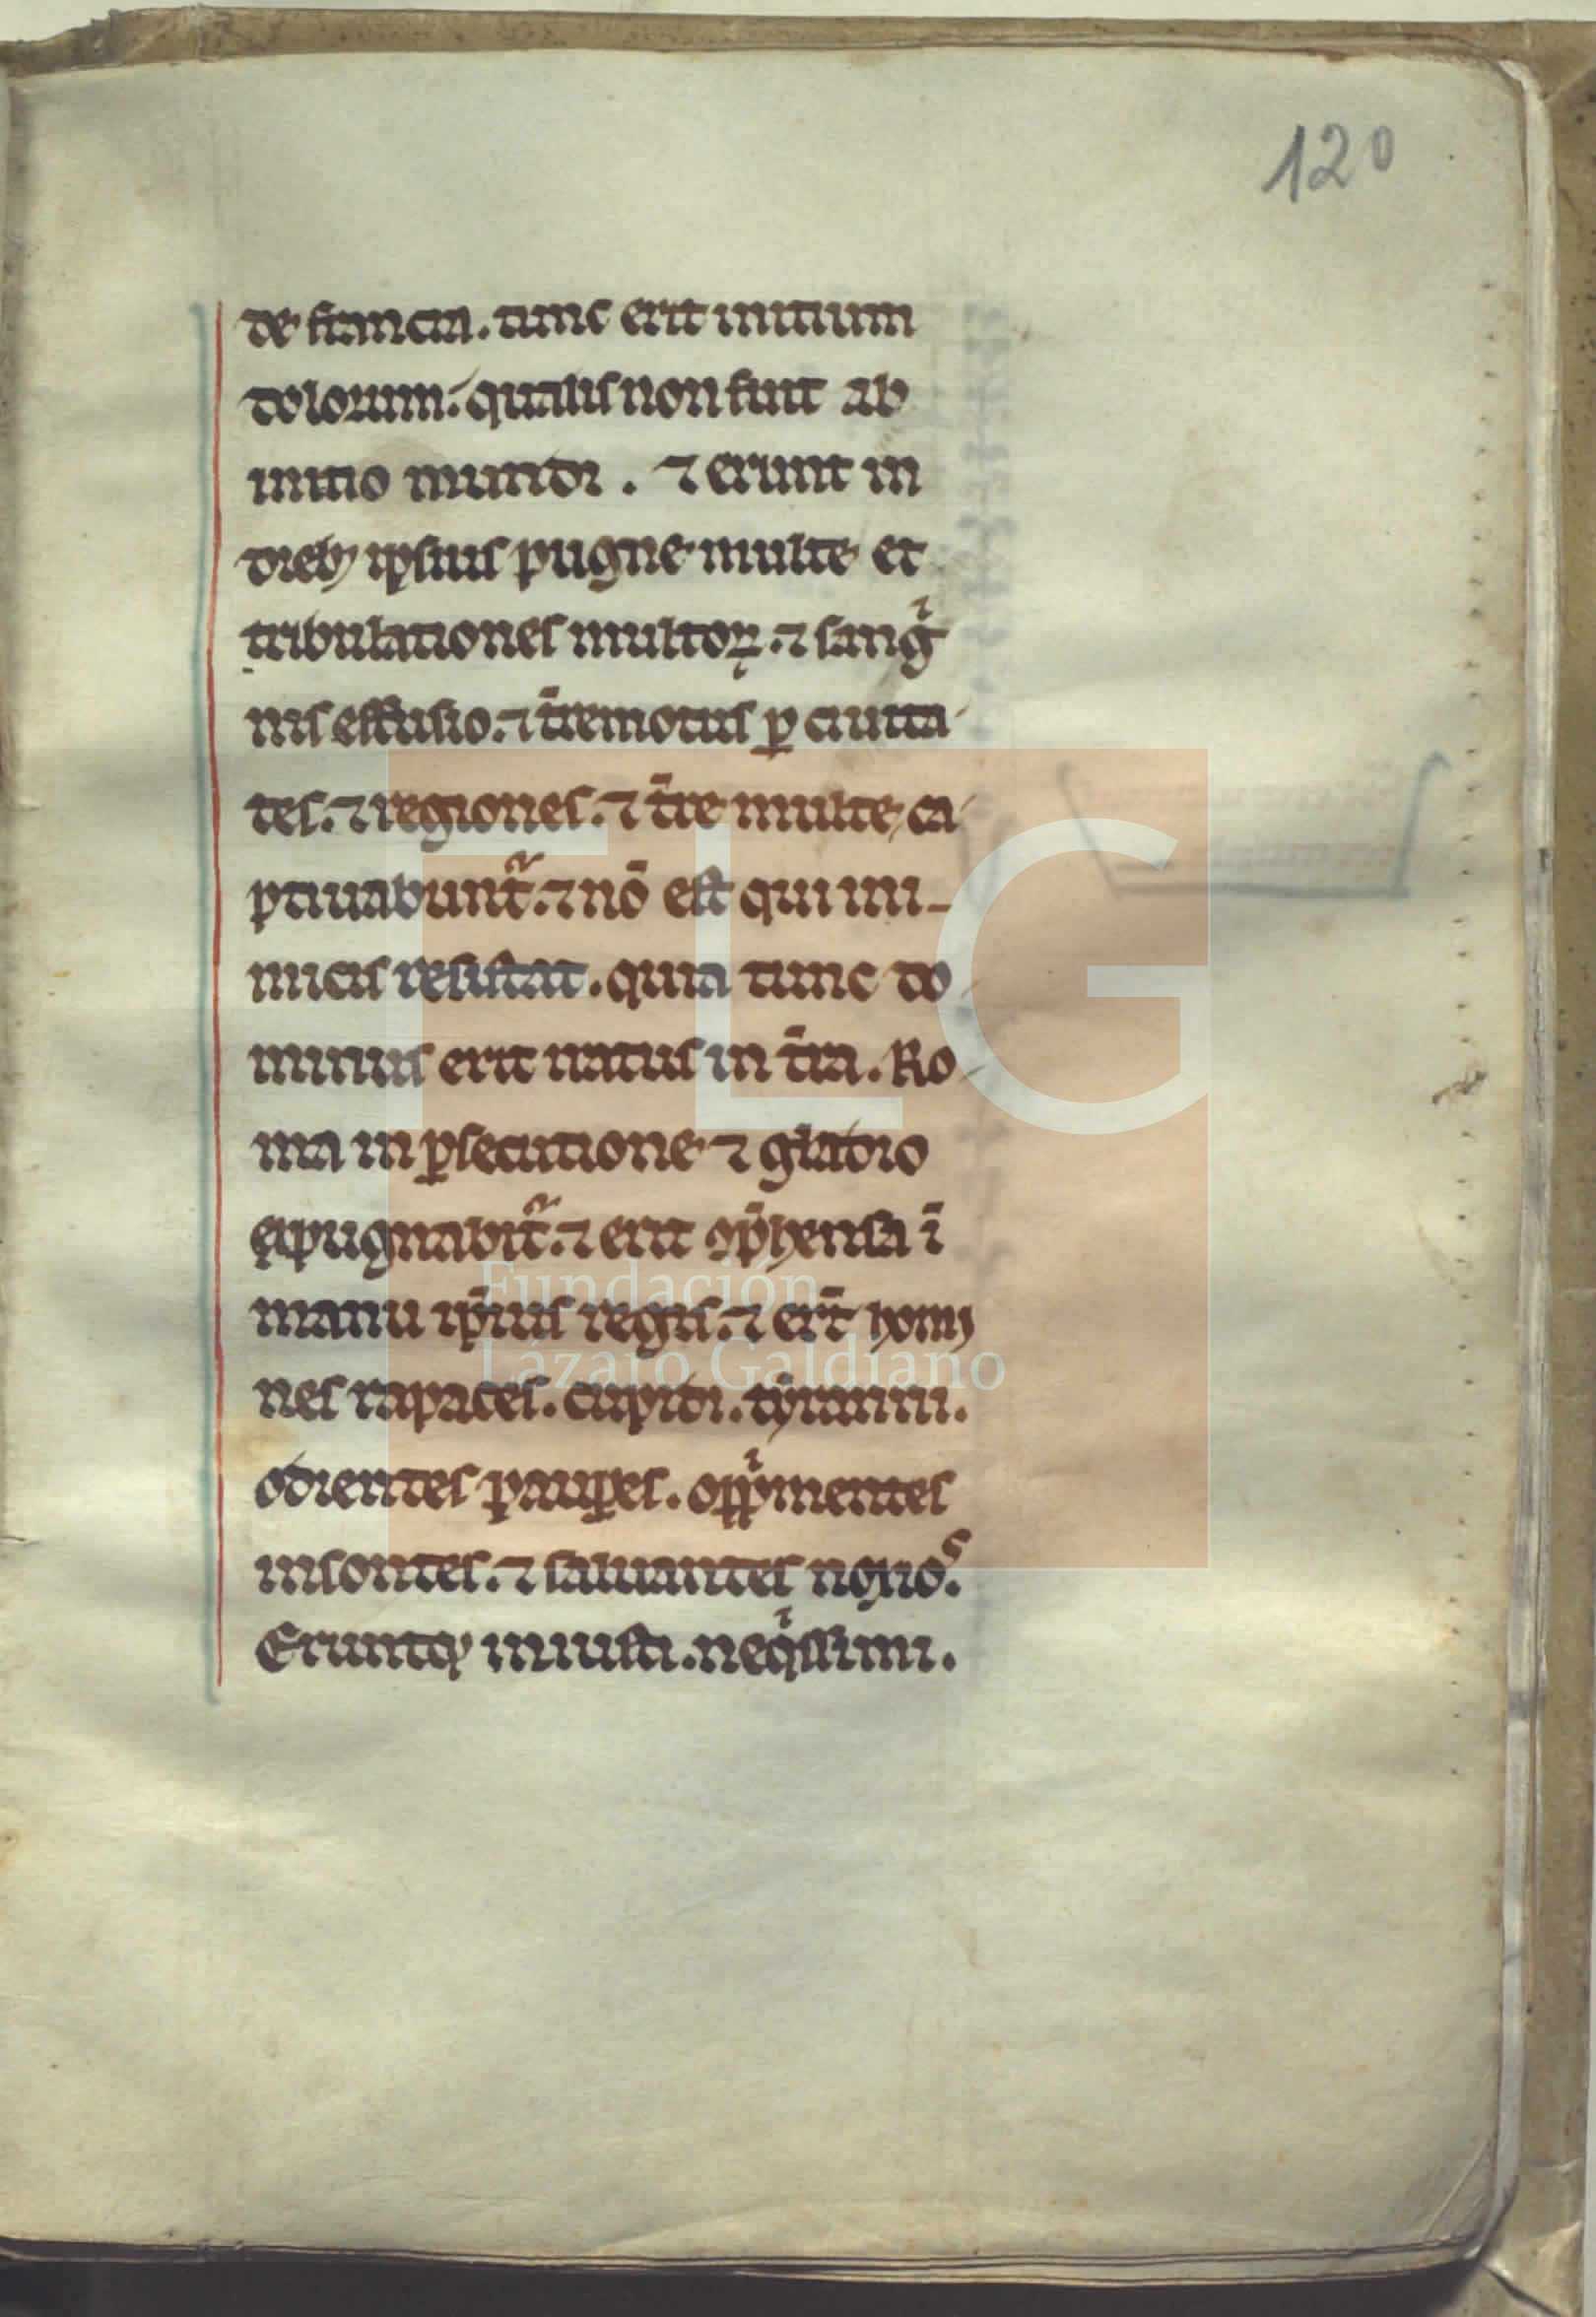 120
de francia. tunc erit initium
dolorum. qualis non fuit ab
initio mundi. ⁊ erunt in
dieb; ipsius pugne multe et
tribulationes multoꝝ. ⁊ sangⁱ
nis effusio. ⁊ t̄remotus ꝑ ciuita
tes. ⁊ regiones. ⁊ t̄re multe ca
ptiuabunt᷑. ⁊ nō est qui ini-
micis resistat. quia tunc do
minus erit natus in t̄ra. Ro
ma in ꝑsecutione ⁊ gladio
expugnabit᷑. ⁊ erit ꝯp̄hensa ī
manu ip̄ius regis. ⁊ er̄t homi
nes rapaces. cupidi. tyranni.
odientes pauꝑes. oppⁱmentes
insontes. ⁊ saluantes noxioˢ.
Eruntqꝫ iniusti. neqⁱssimi.
FLG
Fundación
Lázaro Galdiano